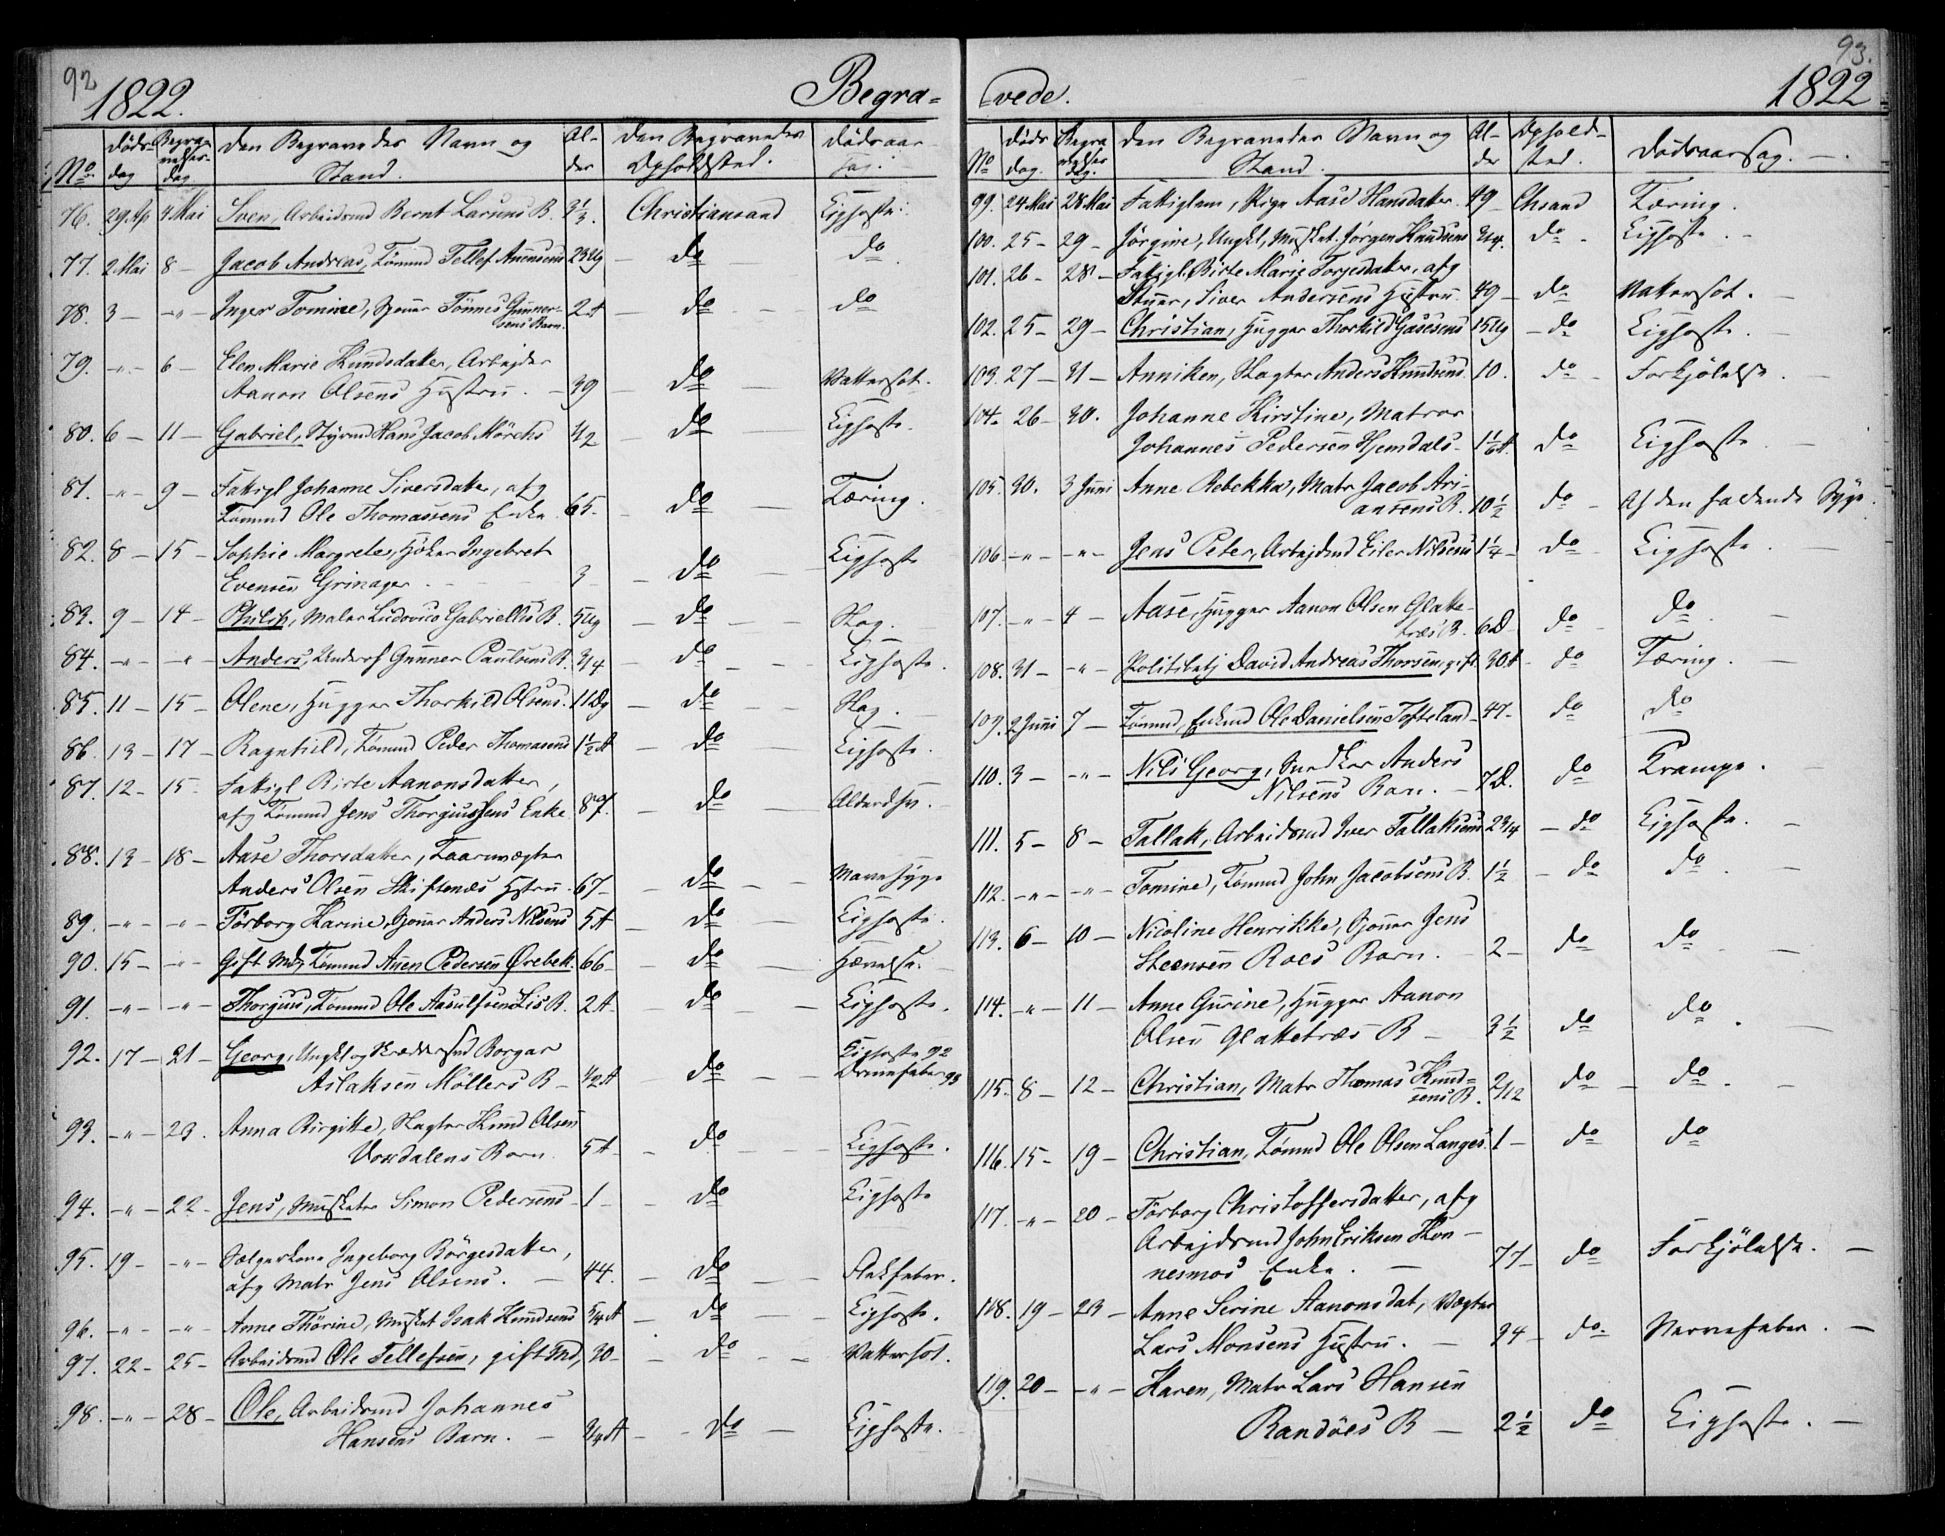 92
1822.
Begra=
No
Døds-dag
Begravelses-dag
Den Begravedes Navn og Stand.
Alder
Den Begravedes Opholdsted.
Dødsaarsag.
76. 29 Ap 4 Mai Sven, Arbeidsmd Bernt Larsens B. Christiansand Kighoste.
77. 2 Mai 8 – Jacob Andreas, Tømmd Tellef Anensens 23 Ug – do do
78. 3 – –"– Inger Tomine, Tønnes Gunner-
sens Barn. 2 A – do do
79. –"– 6 – Elen Marie Knudsdatter, Arbejder
Aanon Olsens Hustru. – 39 – do – Vattersot.
80. 6 – 11 – Gabriel, Styrmd Hans Jacob Mørchs 4/2 – do – Kighoste.
81. –"– 9 – Fattigl Johanne Siversdatter, afg
Tømmd Ole Thomassens Enke. 65. – do – Tæring.
82. 8 – 15 – Sophie Margrete, Høker Ingebret
Evensen Grinager 3 – do – Kighoste
83. 9 – 14 – Philip, Maler Ludovico Gabriellis B. 5 Ug – do – Slag.
84. –"– –"– Anders, Gunner Paulsens B. 3/4 – do – Kighoste.
85. 11 – 15 – Olene, Hugger Thorkild Olsens. 11 Dg – do – Slag.
86. 13 – 17 – Ragnhild, Tømmd Peder Thomasens 1½ A – do – Kighoste.
87. 12 – 15 – Fattigl Birte Aanonsdatter,
afg Tømmd Jens Thorgiussens Enke 87. – do – Alderdsv.
88. 13 – 18 – Aase Thorsdatter, Taarnvægter
Anders Olsen Skiftenæs Hstru. 67 – do – Mavesyge
89. –"– –"– Törborg Karine, Anders Nilsens 5 A – do – Kighoste.
90. 15 – –"– Gift Md, Tømmd Anen Pedersen Ørebek. 66 – do – Hævelse.
91. –"– –"– Thorgius, Tømmd Ole Aasulfsen Lis B. 2 A – do – Kighoste.
92. 17 – 21 – Georg, Ungkl og Skræddersvd Borgar
Aslaksen Möllers B – 4/2 A – do – Kighoste 92
93
93. –"– 23. Anna Birgitte, Slagter Knud Olsen
Vordalens Barn. 5 A – do – Kighoste.
94. –"– 22 – Jens, Musketer Simon Pedersens – 1 – do – Kighoste
95. 19 – –"– Sælgerkone Ingeborg Börgesdatter,
afg Matr Jens Olsens. – 44. – do – Flekfeber.
96. –"– –"– Anne Thörine, Musket Isak Knudsens 5/4 A – do – Kighoste.
97. 22 – 25 – Arbeidsmd Ole Tellefsen, gift Md, 30 – do – Vattersot.
98. –"– 28 – Ole, Arbeidsmd Johannes
Hansens Barn. – 3/4 A – do – Kighoste.
93.
vede.
1822
No
Døds dag.
Begravelses dag.
Den Begravedes Navn og Stand.
Alder
Opholdsted.
Dødsaarsag.
99. 24 Mai 28 Mai Fattiglem, Pige Aase Hansdatter. 49 – Chsand Tæring.
100. 25 – 29 – Jörgine, Ungkl, Musket. Jörgen Knudsens 3/4. do – Kighoste.
101. 26 – 28 – Fattigl. Birte Marie Torjesdatter, afg
Stuer, Siver Andersens Hustru. 49 – do – Vattersot.
102. 25 – 29 – Christian, Hugger Thorkild Gasesens 15 Ug – do – Kighoste.
103. 27 – 31 – Anniken, Slagter Anders Knudsens. 10. do – Forkjölelse.
104. 26 – 30. Johanne Kirstine, Matros
Johannes Pedersen Hjemdals – 1 1/6 A. do Kighoste.
105. 30. 3 Juni Anne Rebekka, Matr Jacob Ari-
ansens B. 10½ do – Af den faldende Syge.
106. –"– –"– Jens Peter, Arbejdsmd Eiler Nilsens 1¼ – do – Kighoste.
107. –"– 4 – Aase, Hugger Aanon Olsen Glatte-
træs B. 6 D – do – do
108. 31 – –"– Politibetj David Andreas Thorsen, gift 30 A – do Tæring.
109. 2 Juni 7 – Tømmd, Enkmd Ole Danielsen Tofteland – 47 – do do
110. 3 – –"– Nils Georg, Snedker Anders
Nilsens Barn. – 7 D. do Krampe.
111. 5 – 8 – Tallak, Arbeidsmd Iver Tallaksens 2 3/4 – do Kighoste.
112. –"– –"– Tomine, Tømmd John Jacobsens B. 1½ – do do
113. 6 – 10 – Nicoline Henrikke, Jens
Steensen Roes Barn. 2 – do do
114. –"– 11 – Anne Gurine, Hugger Aanon
Olsen Glattetræs B – 3½ do do
115. 8 – 12 – Christian, Matr Thomas Knud=
sens B. 2/12 do – do
116. 15 – 19 – Christian, Tømmd Ole Olsen Langes. 1 – do do
117. –"– 20 – Törborg Christoffersdatter, afg
Arbejdsmd John Eriksen Kon-
nesmos Enke. – 77 – do Forkjölelse.
118. 19 – 23 – Anne Serine Aanonsdat, Vægter
Lars Monsens Hustru. – 34 – do. Nervefeber.
119. 20 – –"– Karen, Matr Lars Hansen
Randöes B – 2½ do Kighoste.